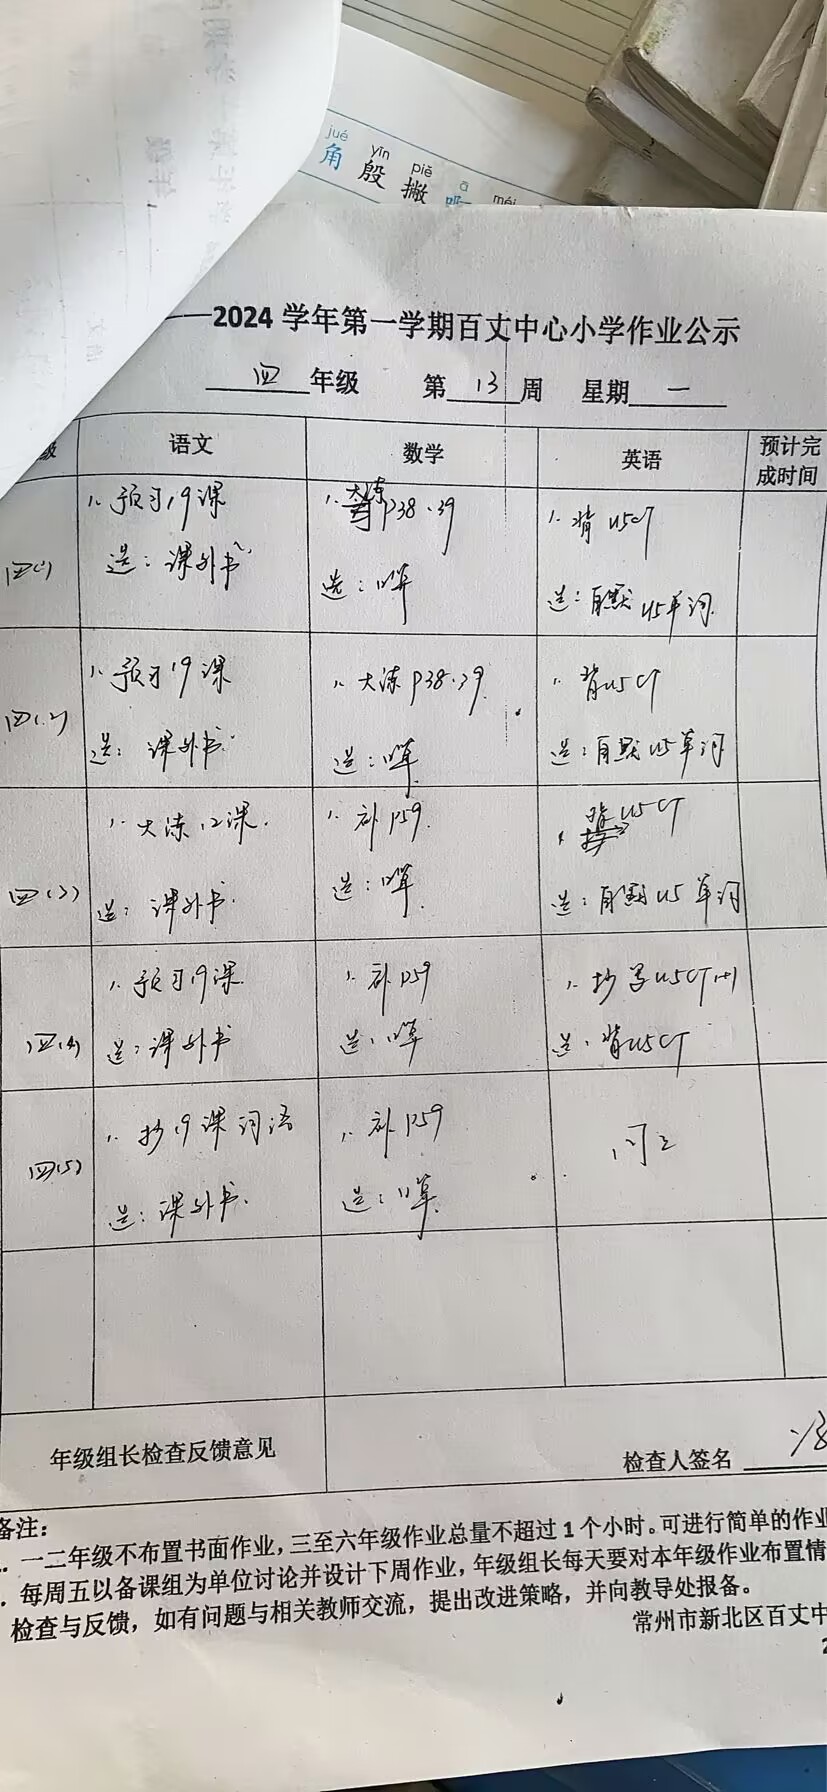 jué yīn piě ā méi
角 殷 撇
2024 学年第一学期百丈中心小学作业公示
四 年级 第 13 周 星期 一
级 语文 数学 英语 预计完成时间
四(1)
1. 预习19课
选：课外书
1. 大练 P38.39
选：口算
1. 背U5CT
选：自默U5单词
四(2)
1. 预习19课
选：课外书
1. 大练 P38.39
选：口算
1. 背U5CT
选：自默U5单词
四(3)
1. 大练12课.
选：课外书.
1. 补P59.
选：口算
1. 背U5CT
选：自默U5单词
四(4)
1. 预习19课
选：课外书
1. 补P59
选：口算
1. 抄写U5CT1+1
选：背U5CT
四(5)
1. 抄19课词语
选：课外书.
1. 补P59
选：口算
同上
年级组长检查反馈意见
检查人签名
备注：
一二年级不布置书面作业，三至六年级作业总量不超过 1 个小时。可进行简单的作业
每周五以备课组为单位讨论并设计下周作业，年级组长每天要对本年级作业布置情
检查与反馈，如有问题与相关教师交流，提出改进策略，并向教导处报备。
常州市新北区百丈中